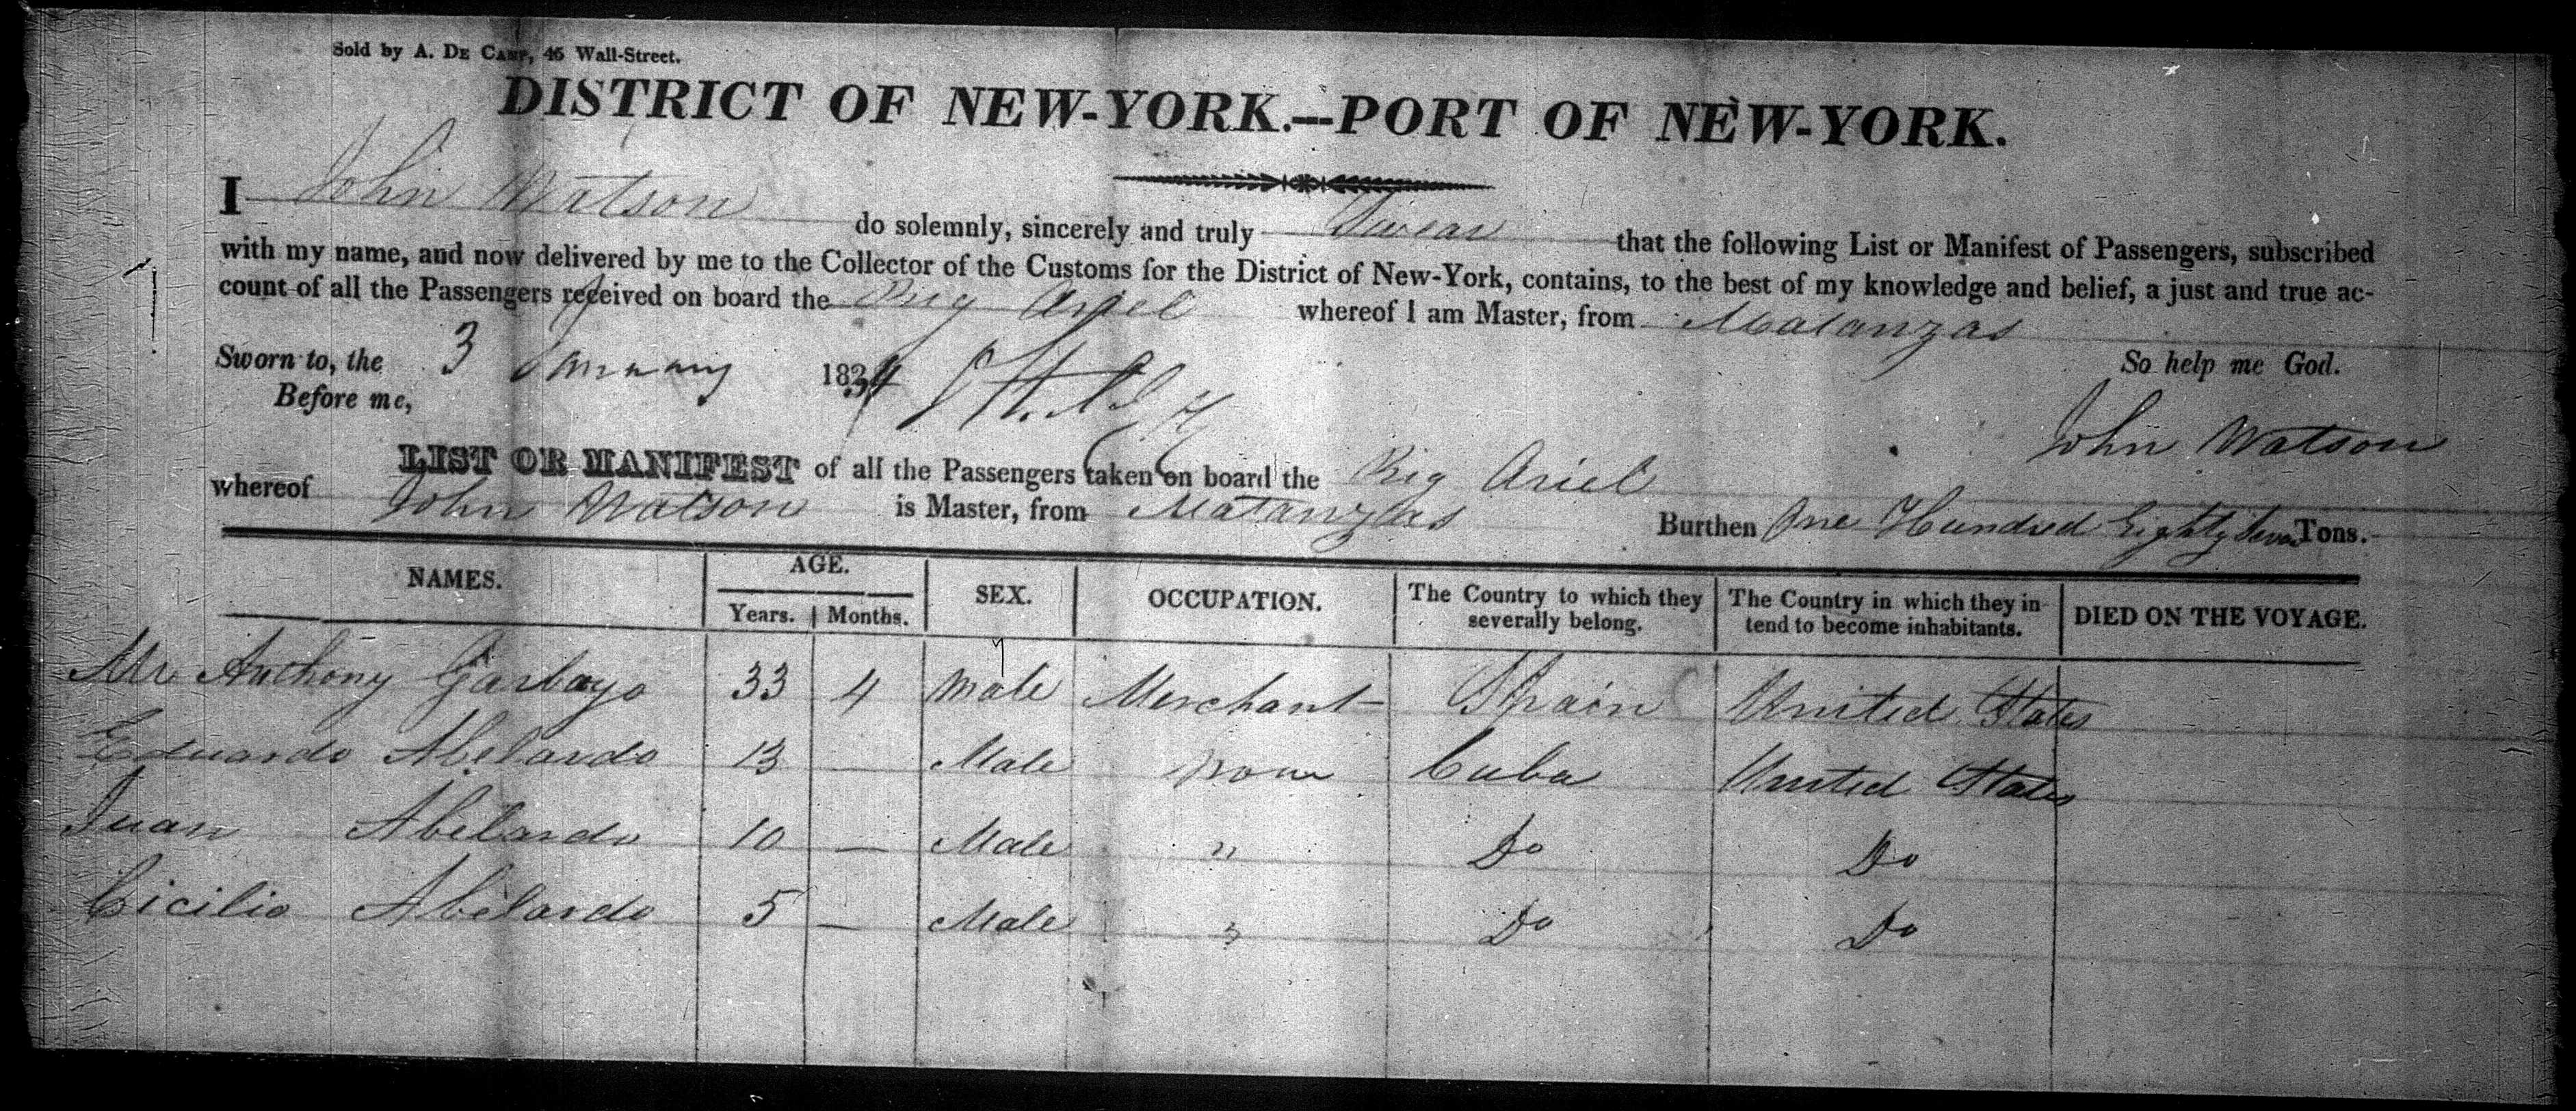 Sold by A. De Camp, 46 Wall-Street.
DISTRICT OF NEW-YORK.—PORT OF NEW-YORK.
I John Watson do solemnly, sincerely and truly Swear that the following List or Manifest of Passengers, subscribed
with my name, and now delivered by me to the Collector of the Customs for the District of New-York, contains, to the best of my knowledge and belief, a just and true ac-
count of all the Passengers received on board the Brig Ariel whereof I am Master, from Matanzas
So help me God.
Sworn to, the 3 January 1834
Before me,
John Watson
LIST OR MANIFEST of all the Passengers taken on board the Brig Ariel
whereof John Watson is Master, from Matanzas Burthen One Hundred Eighty Seven Tons.
NAMES. AGE. SEX. OCCUPATION. The Country to which they severally belong. The Country in which they in- tend to become inhabitants. DIED ON THE VOYAGE.
Years. Months.
Mr Anthony Garbayo 33 4 Male Merchant Spain United States
Eduardo Abelardo 13 — Male None Cuba United States
Juan Abelardo 10 — Male " Do Do
Cicilio Abelardo 5 — Male " Do Do